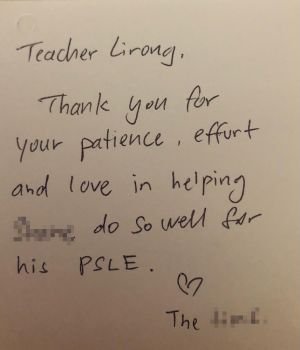 Teacher Lirong,
Thank you for
your patience, effort
and love in helping
do so well for
his PSLE.
The